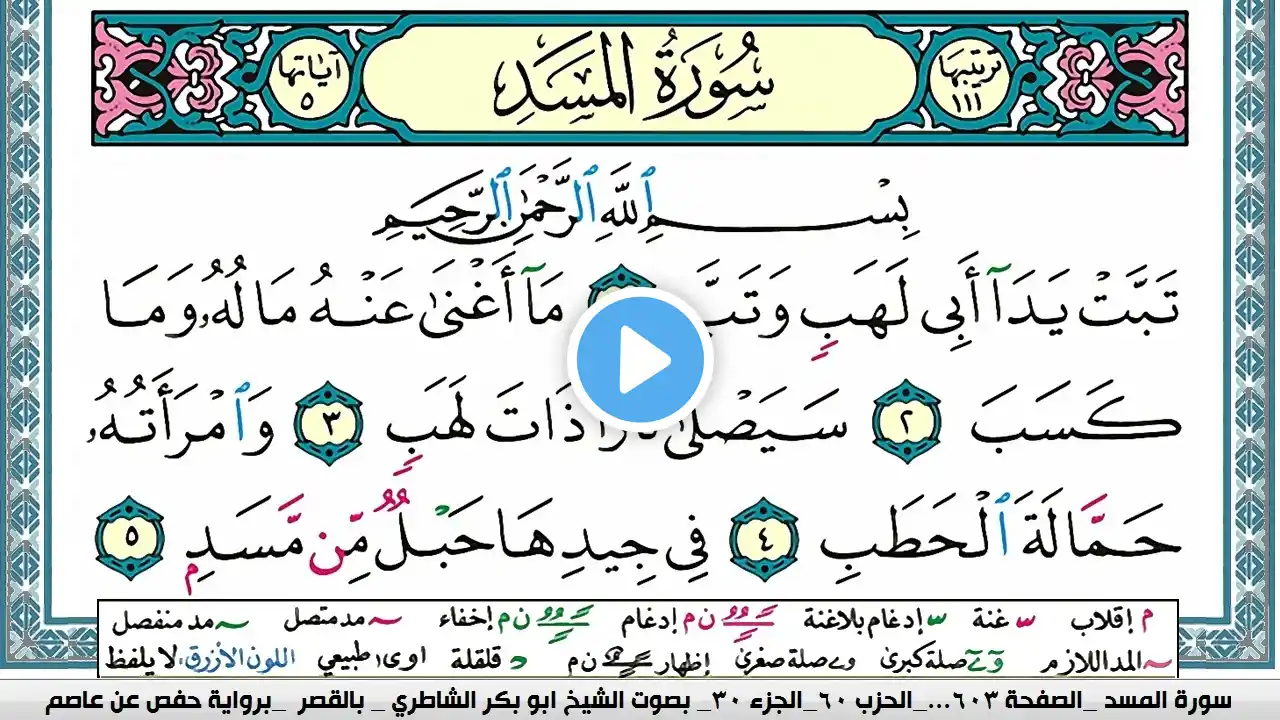 ترتيبها ١١١
سُورَةُ المَسَدِ
آيَاتُها ٥
بِسْمِ ٱللَّهِ ٱلرَّحْمَٰنِ ٱلرَّحِيمِ
تَبَّتْ يَدَآ أَبِى لَهَبٍ وَتَبَّ مَآ أَغْنَىٰ عَنْهُ مَالُهُۥ وَمَا
كَسَبَ ٢ سَيَصْلَىٰ ذَاتَ لَهَبٍ ٣ وَٱمْرَأَتُهُۥ
حَمَّالَةَ ٱلْحَطَبِ ٤ فِى جِيدِهَا حَبْلٌ مِّن مَّسَدٍ ٥
م إقلاب ـ غنة ـ إدغام بلاغنة ن م إدغام ن م إخفاء ~ مد متصل ~ مد منفصل
~ المد اللازم وے صلة كبرىٰ وے صلة صغرىٰ إظهار ن م د قلقلة اوى طبيعي اللون الأزرق، لا يلفظ
سورة المسد _الصفحة ٦٠٣..._الحزب ٦٠_الجزء ٣٠_ بصوت الشيخ ابو بكر الشاطري _ بالقصر _برواية حفص عن عاصم